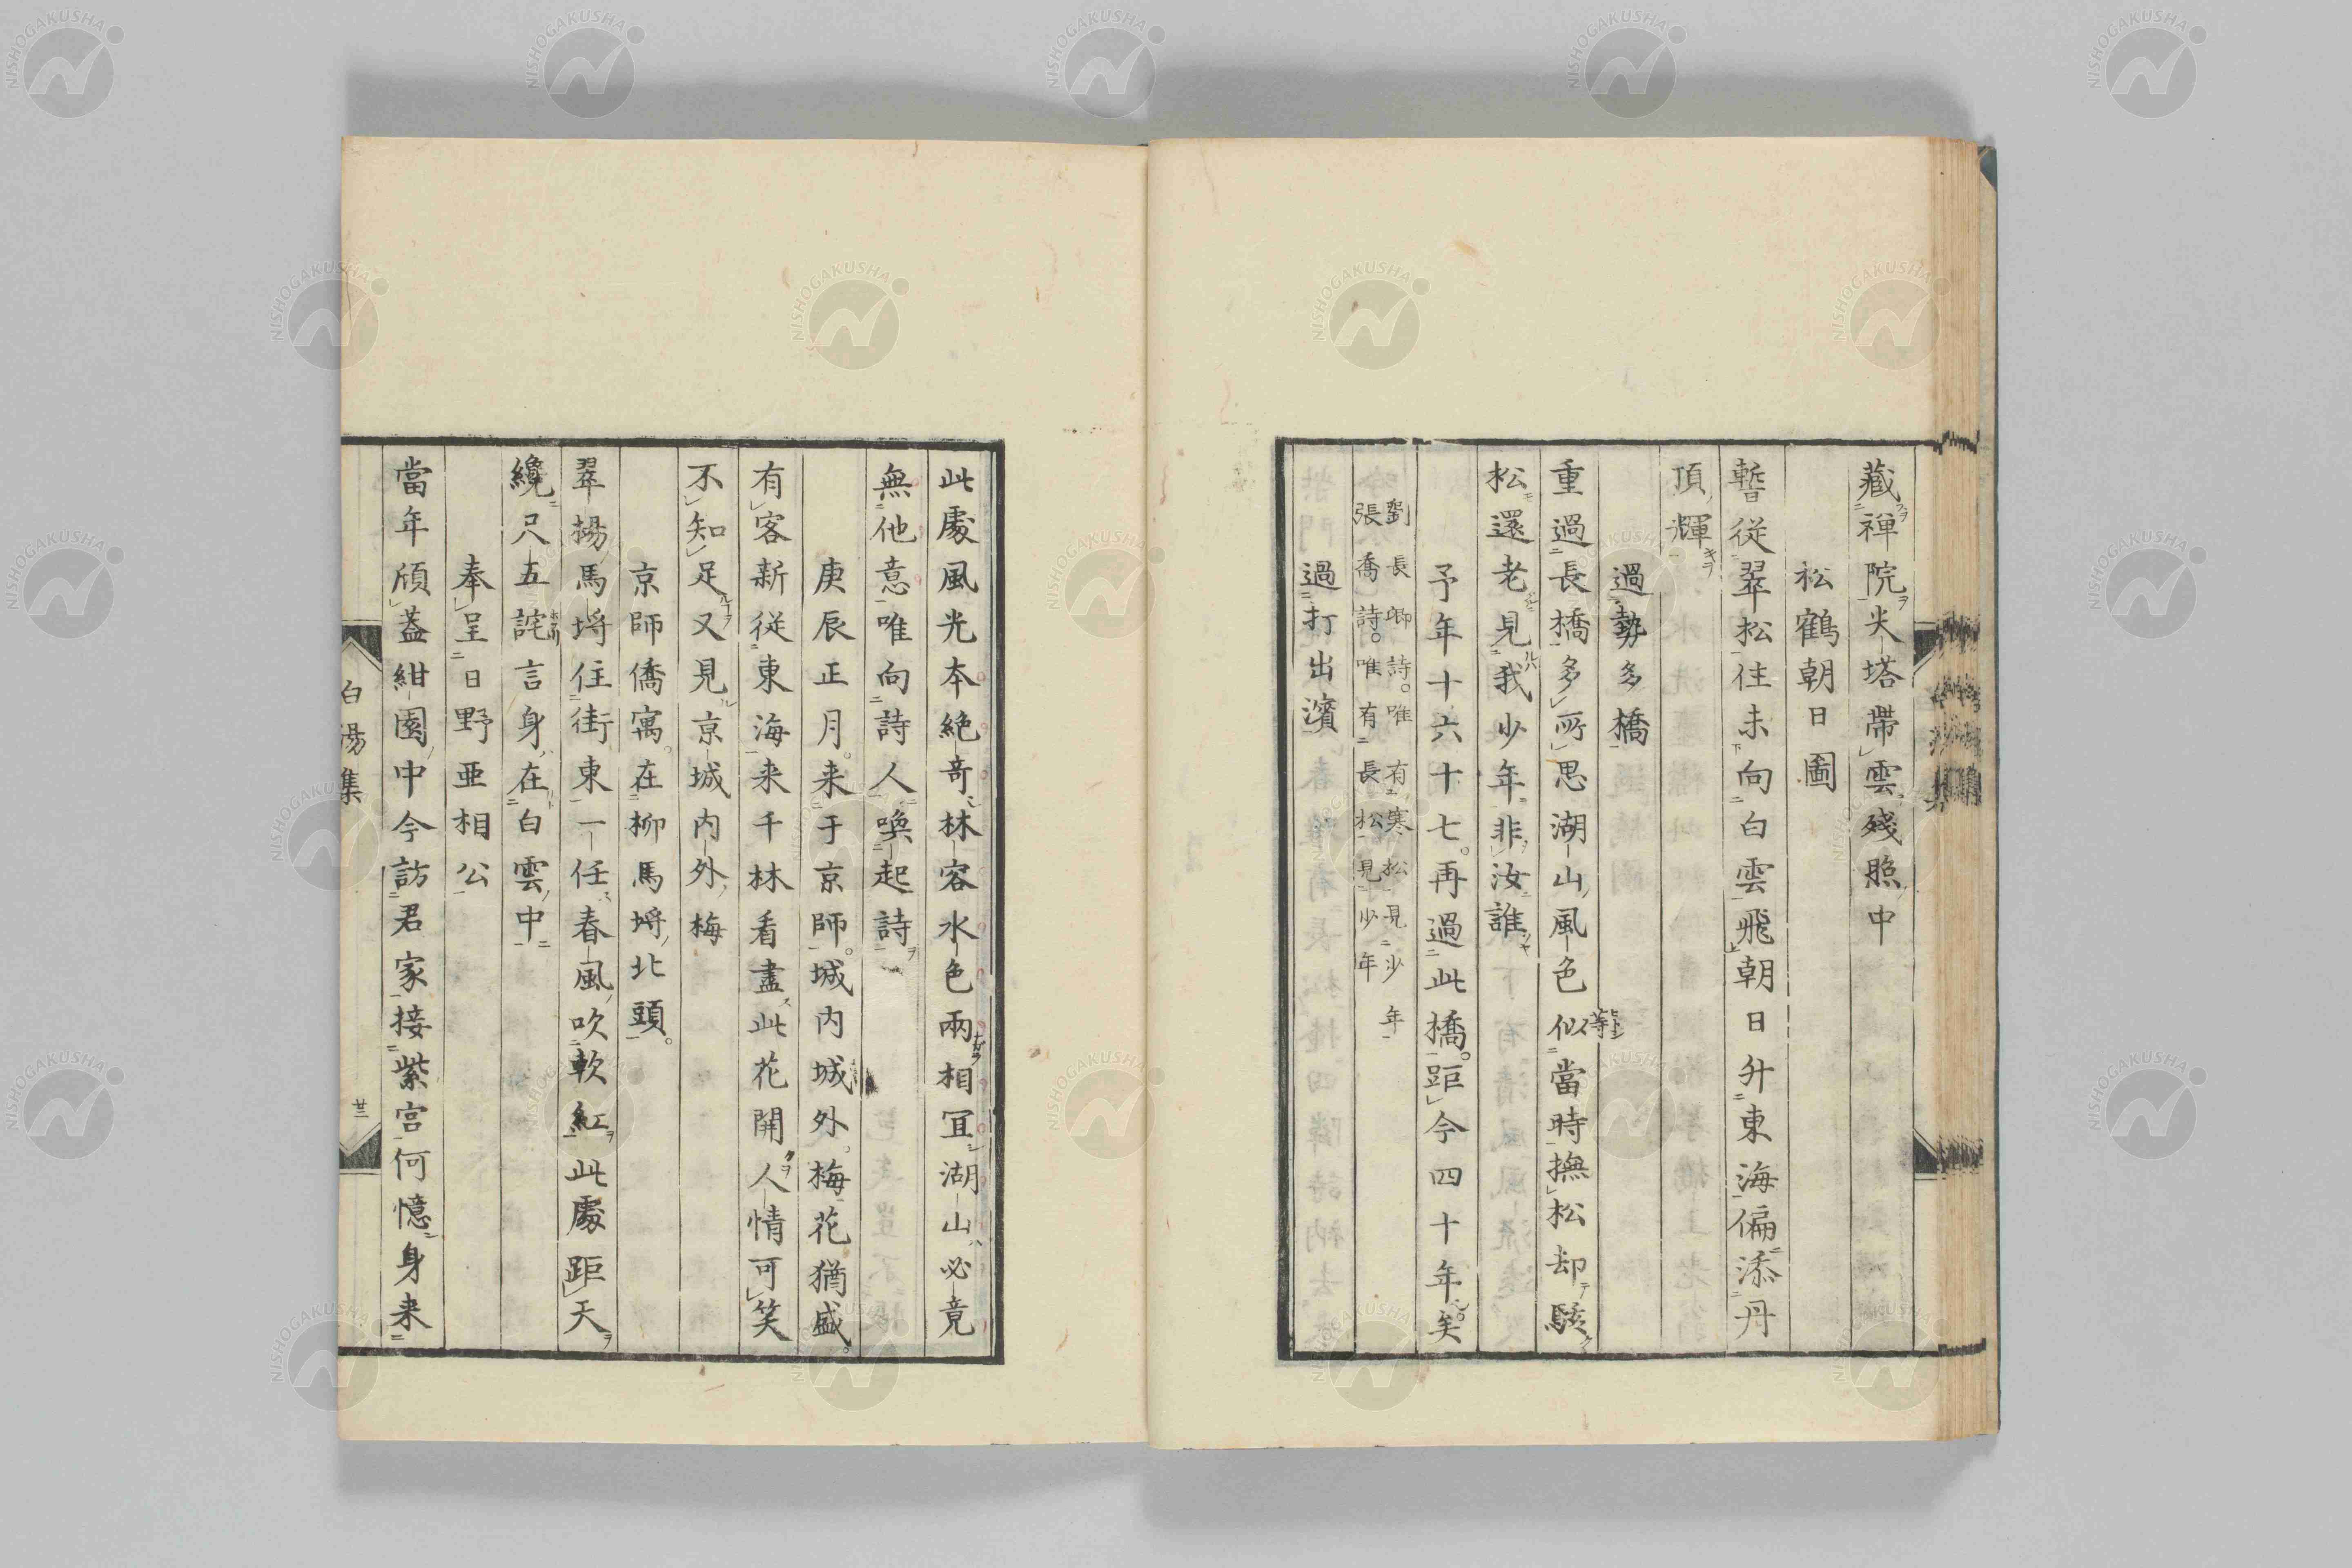 藏禅院尖塔帶雲殘照中
松鶴朝日圖
蹔從翠松住未向白雲飛朝日升東海偏添丹
頂輝
過勢多橋
重過長橋多所思湖山風色似當時撫松却駭
松還老見我少年非汝誰
予年十六十七。再過此橋。距今四十年矣
劉長卿詩。唯有寒松見少年
張喬詩。唯有長松見少年
過打出濱
此處風光本絶奇林容水色兩相冝湖山必竟
無他意唯向詩人喚起詩
庚辰正月。来于京師。城内城外。梅花猶盛。
有客新從東海来千林看盡此花開人情可笑
不知足又見京城内外梅
京師僑寓。在柳馬埒北頭。
翠楊馬埒住街東一任春風吹軟紅此處距天
纔尺五詫言身在白雲中
奉呈日野亜相公
當年傾蓋紺園中今訪君家接紫宮何憶身来
白湯集
廿三
NISHOGAKUSHA